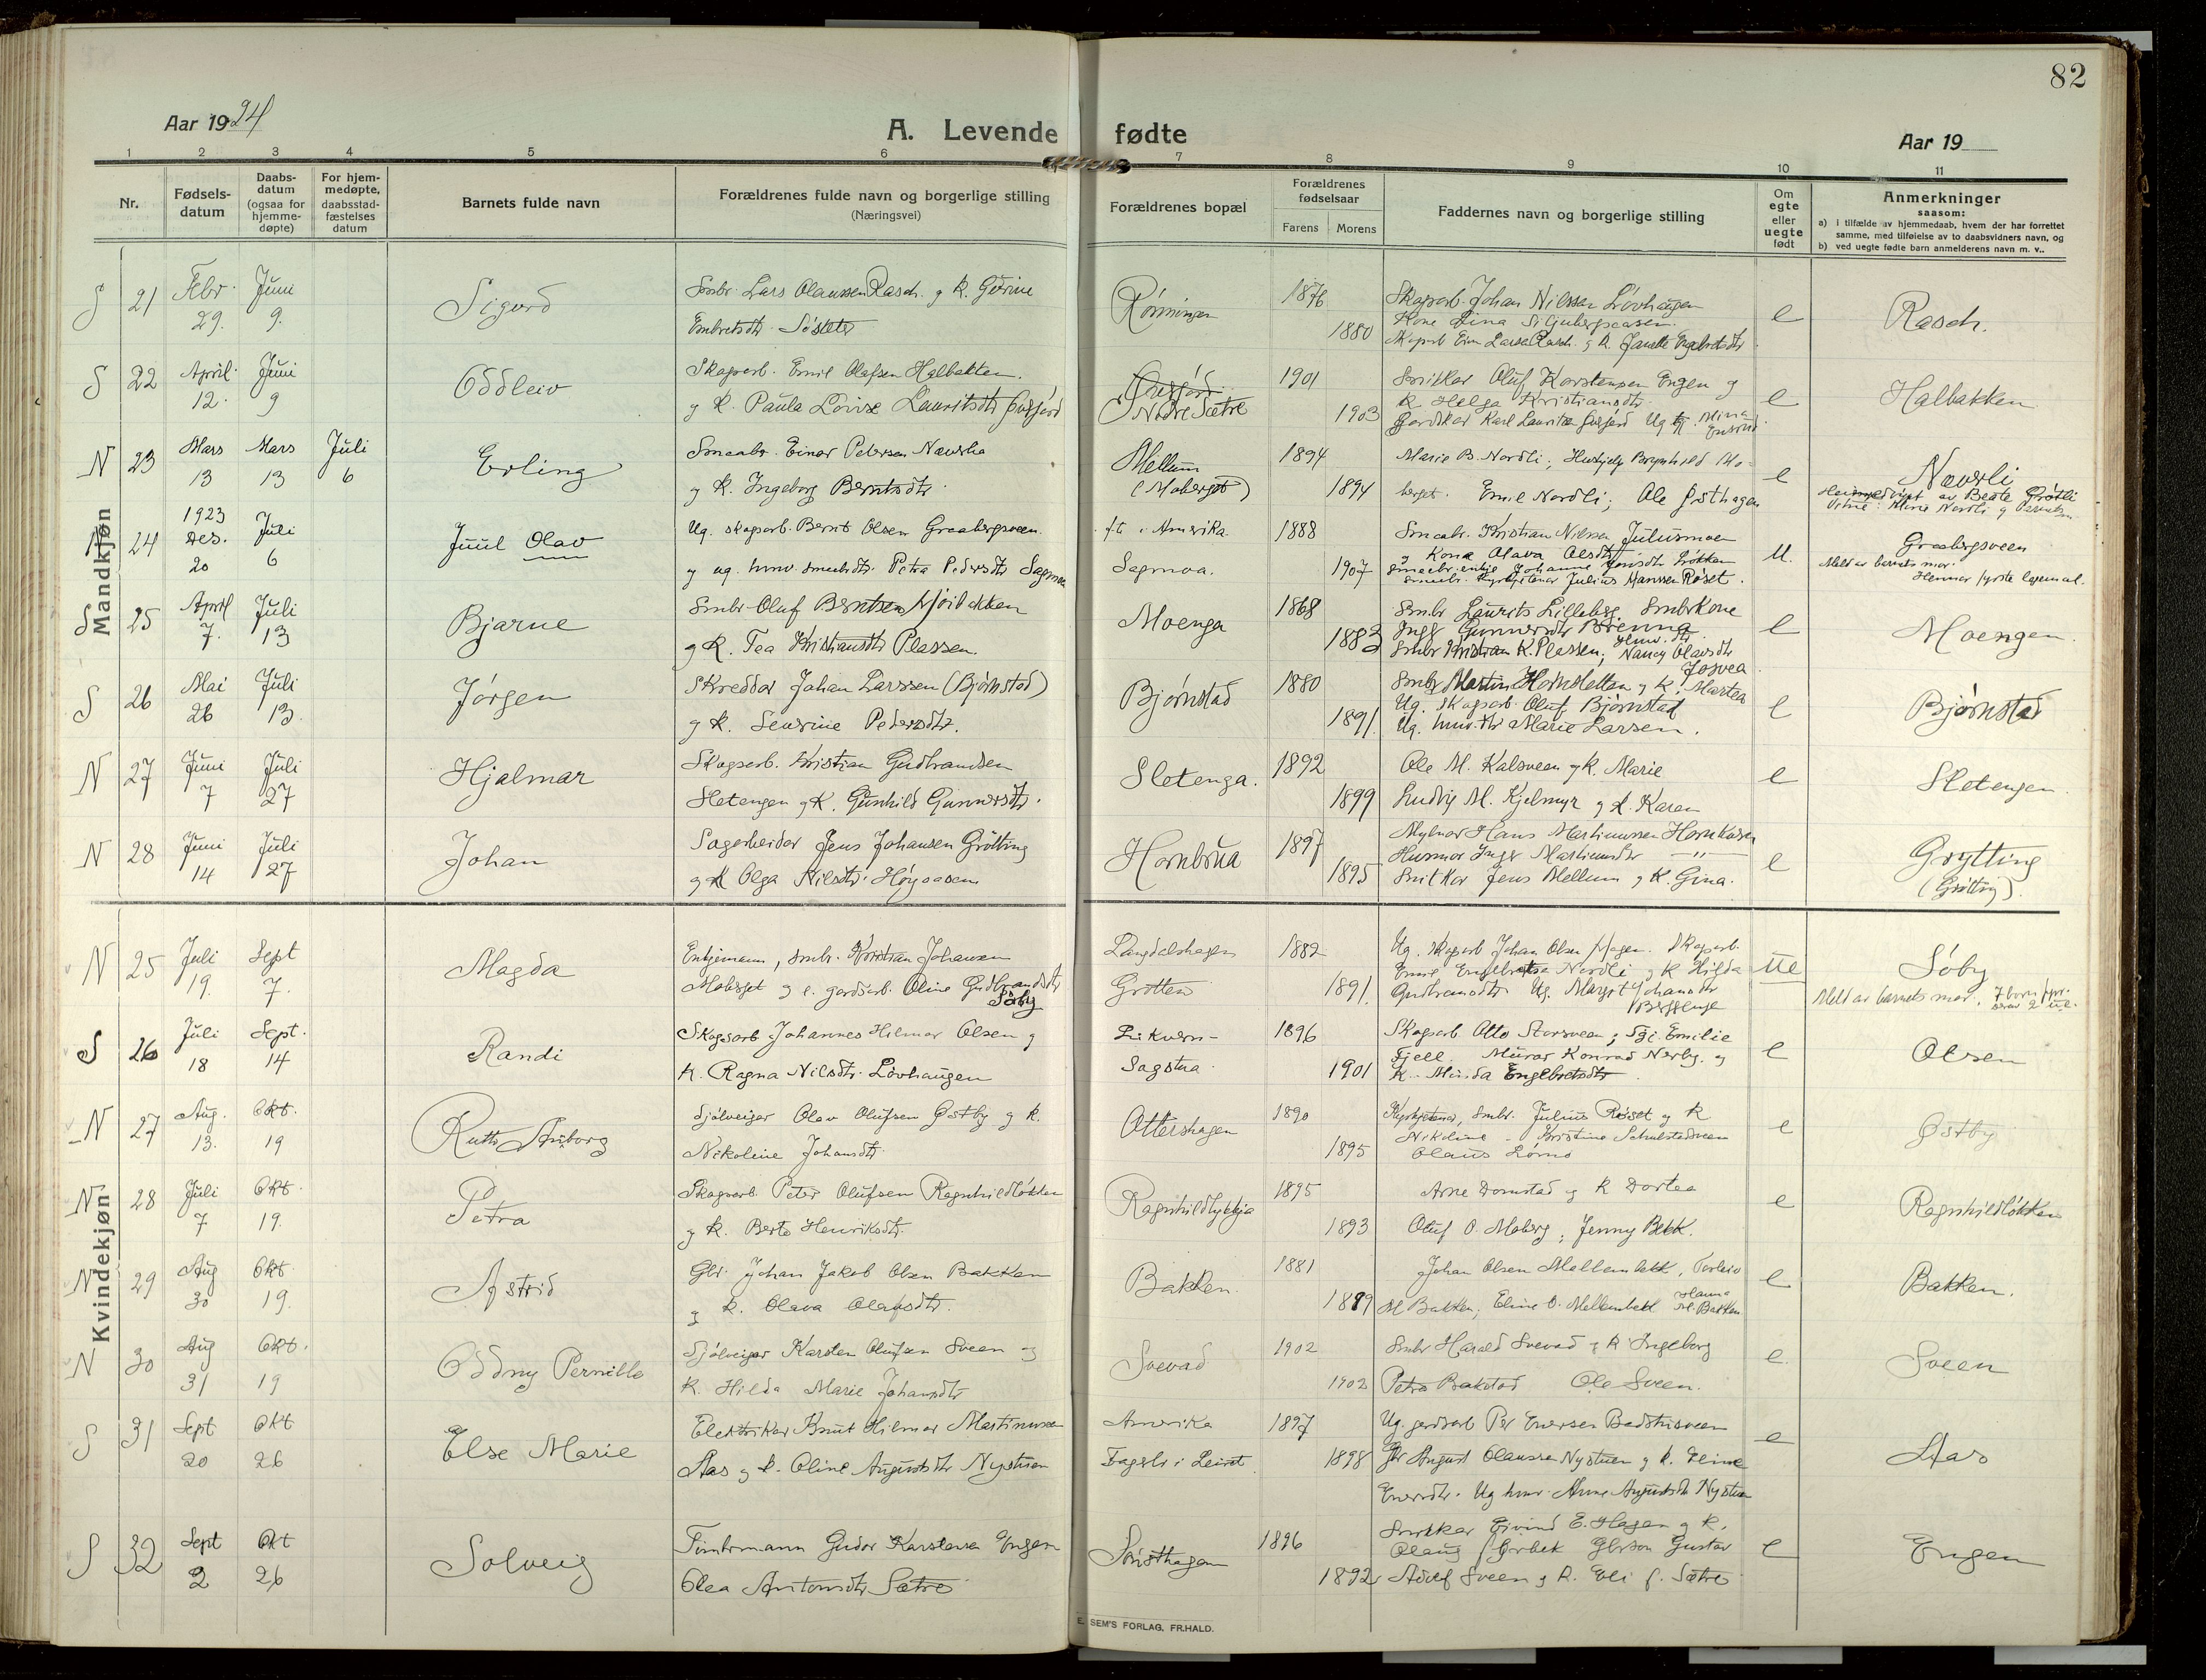 82
Aar 1924
A. Levende fødte
Aar 19
1 2 3 4 5 6 7 8 9 10 11
Nr.
Fødsels-
datum
Daabs-
datum
(ogsaa for
hjemme-
døpte)
For hjem-
medøpte,
daabsstad-
fæstelses
datum
Barnets fulde navn
Forældrenes fulde navn og borgerlige stilling
(Næringsvei)
Forældrenes bopæl
Forældrenes
fødselsaar
Farens Morens
Faddernes navn og borgerlige stilling
Om
egte
eller
uegte
født
Anmerkninger
saasom:
a) i tilfælde av hjemmedaab, hvem der har forrettet
samme, med tilføielse av to daabsvidners navn, og
b) ved uegte fødte barn anmelderens navn m. v..
Mandkjøn
S 21 Febr. 29. Juni 9. Sigurd
Smbr. Lars Olaussen Rasch. g K. Gurine
Embretsdtr.
Rönningen 1876 1880
Skogsarb. Johan Nilssen Lövhaugen
Kone Lina
e Rasch.
S 22 April 12. Juni 9 Oddleiv
Skogsarb. Emil Olafsen Halbakken.
g K. Paula Lovise Lauritsdtr
Nordre Sætre 1901 1903
Snikkar Oluf Karstensen Engen g
K Helga Kristiansdtr.
e Halbakken
N 23 Mars 13 Mars 13 Juli 6 Erling
Smaabr. Einar Petersen
g K. Ingeborg Berntsdtr.
Mellum
(Moberget) 1894 1894
Marie B. Nordli; Hushjelp Brynhild Mo-
berget. Emil Nordli; Ole Østhagen
e Nævrli
N 24 1923 Des. 20 Juli 6 Juul Olav
Ug. skogsarb. Bernt Olsen Graabergsveen.
g ug. hmv. Petra Pedersdtr Sagmoa
f.t. i Amerika 1888
Sagmoa. 1907
Smaabr. Kristian Nilssen Julusmoen
g Kone Olava Olsdtr
Julius Hanssen Røset.
U. Graabergsveen
Meld av barnets mor.
S 25 April 7. Juli 13 Bjarne
Smbr. Oluf Berntsen
g K. Tea Kristiansdtr Plassen.
Moenga 1868 1883
Smbr Laurits Lilleberg. Smbrkone
Smbr Kristian K. Plassen; Nancy Olavsdtr
e Moengen.
S 26 Mai 26 Juli 13. Jørgen
Skreddar Johan Larssen (Bjørnstad)
g K. Severine Pedersdtr.
Bjørnstad 1880 1891.
Smbr Martin Hornsletten g K. Martea
Ug. skogsarb. Oluf Bjørnstad
Ug. hmv. dtr Marie Larsen.
e Bjørnstad
N 27 Juni 7 Juli 27 Hjalmar
Skogsarb. Kristian Gudbrandsen
Sletengen g K. Gunhild Gunnersdtr.
Sletenga. 1892 1899
Ole M. Kalsveen g K. Marie
Ludvig M. Kjelmyr g K. Karen
e Sletengen
N 28 Juni 14 Juli 27 Johan
Sagarbeider Jens Johansen Grötting
g K Olga Nilsdtr. Höyaasen
Hornbrua 1897 1895
Snikkar Jens Mellum g K. Gina.
e Grytting
(Grötting).
Kvindekjøn
N 25 Juli 19. Sept 7. Magda
Enkjemann, smbr. Kristian Johansen
Moberget g e. gardsarb. Oline Gudbrandsdtr
Söby
1882
Grötten 1891.
Ug. skogsarb Johan Olsen Hagen. Skogsarb.
Emil Engebretsen Nordli g K Hilda
Gudbrandsdtr. Ug. Margit Johansdtr
Berggenge
Ue Söby
Meld av barnets mor.
S 26 Juli 18 Sept. 14 Randi
Skogsarb Johannes Hilmar Olsen g
K. Ragna Nilsdtr. Lövhaugen
Sagstua 1896 1901
Skogsarb Otto Storsveen; Emilie
Fjell. Murar Konrad Nerby. g
K. Minda Engebretsdtr.
e Olsen
N 27 Aug. 13. Okt. 19 Ruth Auborg
Sjölveigar Olav Olufsen Østby g K.
Nikoline Johansdtr.
Ottershagen 1890 1895
smbr. Julius Røset g K
Nikoline - Kristine
e Østby
N 28 Juli 7 Okt. 19. Petra
Skogsarb. Peter Olufsen Ragnhildløkken
g K. Berte Henriksdtr.
Ragnhildlykkja 1895 1893
Arne Domstad g K Dortea
Oluf O. Moberg; Jenny Bekk.
e Ragnhildløkken
N 29 Aug 30 Okt. 19. Astrid
Gbr. Johan Jakob Olsen Bakken
g K. Olava Olafsdtr.
Bakken. 1881 1889
Johan Olsen Mellembekk, Torleiv
M Bakken; Eline O. Mellembekk Hanna
M. Bakken
e Bakken.
N 30 Aug 31 Okt. 19 Oddny Pernille
Sjölveigar Karsten Olufsen Sveen g
K. Hilda Marie Johansdtr
Svevad 1902 1902
Smbr Harald Svevad g K Ingeborg
Petra Bakstad Ole Sveen.
e. Sveen
S 31 Sept 20 Okt 26 Else Marie
Elektrikar Knut Hilmar Martinusen
Aas g k. Oline Augustsdtr Nystuen
Amerika 1897
Fagerli i Leiret. 1898
Ug. gardsarb Per Enersen Badstusveen
Gbr August Olaussen Nystuen g K. Eline
Enersdtr. Ug hmv. Anne Augustsdtr Nystuen
e Aas
S 32 Sept 2 Okt 26 Solveig
Tömbrmann Gudor Karstensen Engen
Olea Antonsdtr Sætre
Sörsthagen 1896 1892
Snikkar Eivind E. Hagen g K.
Gustav
Adolf Sveen g K. Eli f. Sætre
e Engen
E. SEM'S FORLAG, FR.HALD.